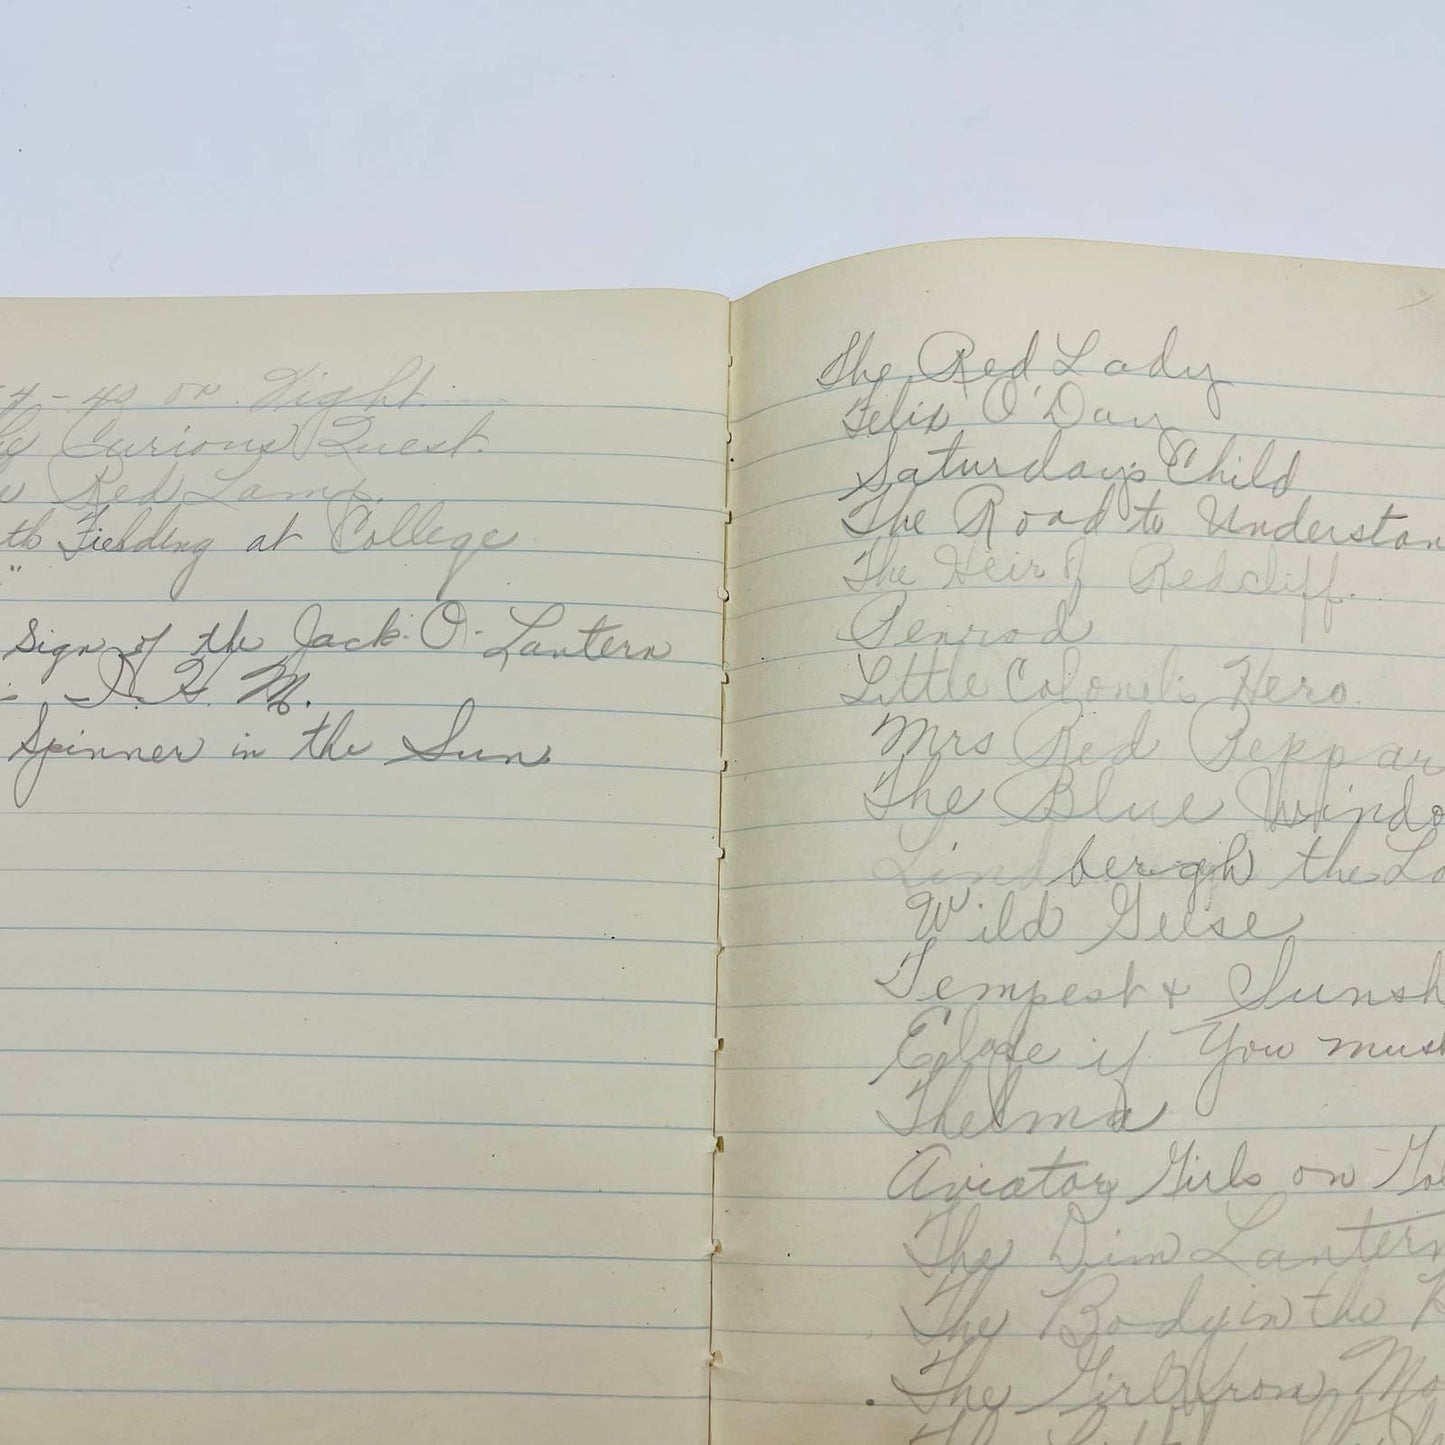 -4-40 or Fight.
Curious Quest.
Red Lamp.
th Fielding at College
"
Sign of the Jack-O-Lantern
M.
Spinner in the Sun
The Red Lady
Felix O'Day
Saturday's Child
The Road to Understan
The Heir of Redcliff.
Penrod
Little Colonel's Hero.
Mrs Red Peppar
The Blue Windo
Lindbergh the Lo
Wild Geese
Tempest & Sunsh
Elope if You must
Thelma
Aviator Girls on Gol
The Dim Lantern
The Body in the
The Girl from Mo